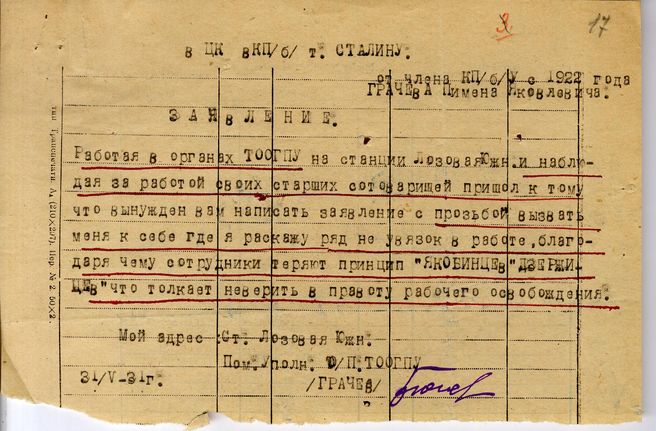 3 17
в ЦК вКП/б/ т. СТАЛИНУ.
от члена КП/б/У с 1922 года
ГРАЧЕВА Пимена Яковлевича.
ЗАЯвЛЕНИЕ.
Работая в органах ТООГПУ на станции Лозовая Южн. и наблю-
дая за работой своих старших сотоварищей пришол к тому
что вынужден вам написать заявление с прозьбой вызвать
меня к себе где я раскажу ряд не увязок в работе, благо-
даря чему сотрудники теряют принцип "ЯКОБИНЦЕВ" ДЗЕРЖИ-
ЦЕВ" что толкает неверить в правоту рабочего освобождения.
Мой адрес: Ст. Лозовая Южн.
Пом. Уполн. О/П. ТООГПУ
31/V-31г. /ГРАЧЕВ/
тип Транспечати А. (210×2/7). Пор. № 2 60×2.